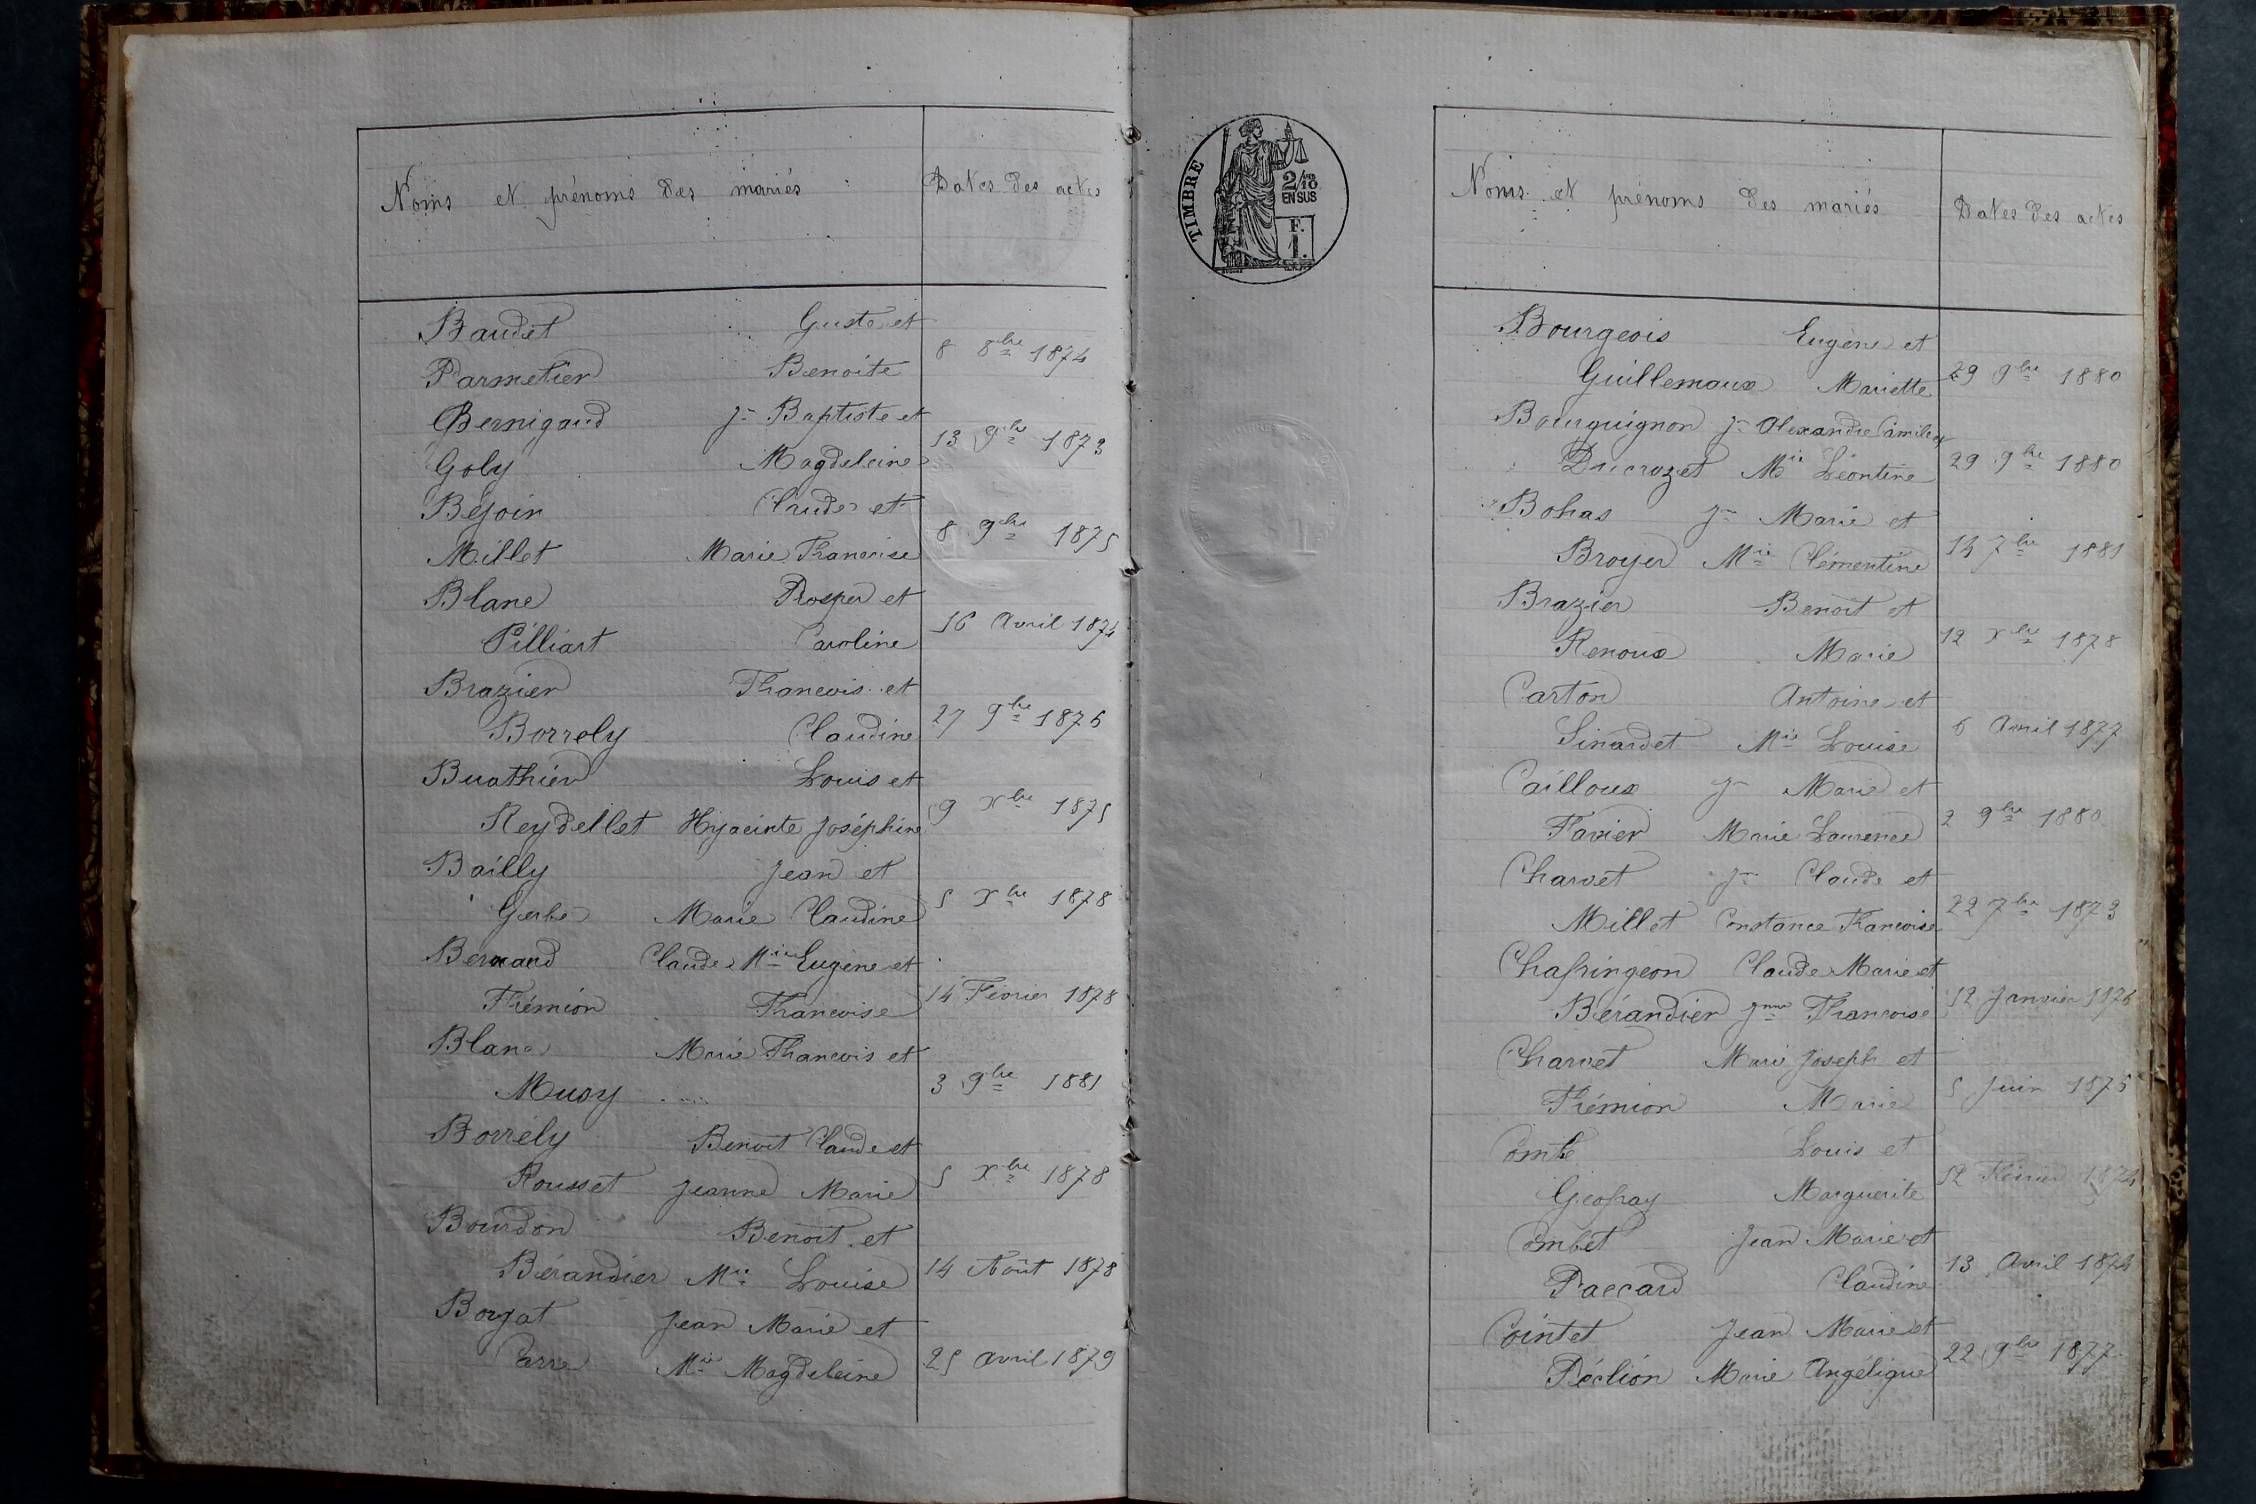 Noms et prénoms des mariés
Dates des actes
Baudet Guste et
8 8bre 1874
Parmetier Benoite
Bernigaud Jn Baptiste et
13 9bre 1873
Goly Magdeleine
Bejoin Claude et
8 9bre 1875
Millet Marie Francoise
Blanc Prosper et
16 Avril 1874
Pilliart Caroline
Brazier Francois et
27 9bre 1876
Borrely Claudine
Buathier Louis et
9 Xbre 1875
Reydellet Hyacinte Joséphine
Bailly Jean et
5 Xbre 1878
Gerbe Marie Claudine
Bernard Claude Mie Eugène et
14 Février 1878
Frémion Francoise
Blanc Marie Francois et
3 9bre 1881
Musy
Borrély Benoit Claude et
5 Xbre 1878
Rousset Jeanne Marie
Bourdon Benoit et
14 Août 1878
Bérandier Mie Louise
Borjat Jean Marie et
25 Avril 1879
Carre Mie Magdeleine
TIMBRE
2/10 EN SUS
F.
1.
Noms et prénoms des mariés
Dates des actes
Bourgeois Eugène et
29 9bre 1880
Guillemaux Mariette
Bourguignon Jn Alexandre Camille et
29 9bre 1880
Ducrozet Mie Léontine
Bohas Jn Marie et
14 7bre 1881
Broyer Mie Clémentine
Brazier Benoit et
12 Xbre 1878
Renoux Marie
Carton Antoine et
6 Avril 1877
Sinardet Mie Louise
Cailloux Jn Marie et
2 9bre 1880
Favier Marie Laurence
Charvet Jn Claude et
22 7bre 1873
Millet Constance Francoise
Chapingeon Claude Marie et
12 Janvier 1876
Bérandier Jnne Francoise
Charvet Marie Joseph et
5 Juin 1875
Frémion Marie
Combe Louis et
12 Février 1874
Geofray Marguerite
Combet Jean Marie et
13 Avril 1874
Paccard Claudine
Cointet Jean Marie et
22 9bre 1877
Péclion Marie Angélique